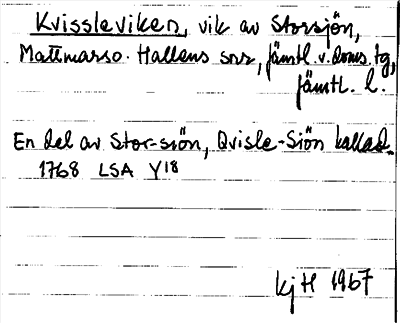 Kvissleviken, vik av Storsjön,
Mattmarso. Hallens snr, Jämtl. v. doms. tg,
Jämtl. l.
En del av Stor-siön, Qvisle-Siön kallad.
1768 LSA Y18
kj H 1967